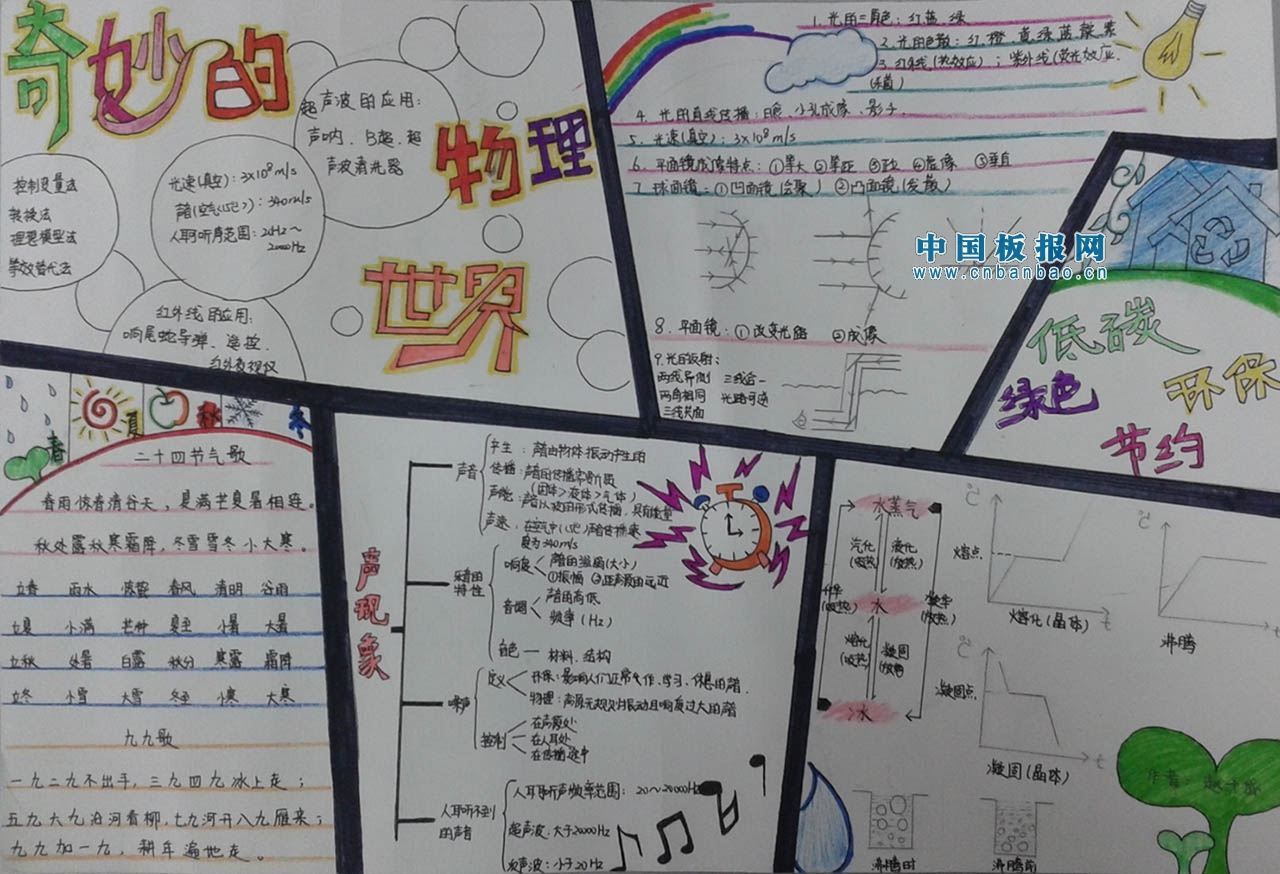 奇妙的
物理
世界
超声波的应用:
声呐、B超、超
声波清洗器
控制变量法
转换法
理想模型法
等效替代法
光速(真空): 3×10⁸m/s
声音(空气(15℃)): 340m/s
人耳听声范围: 20Hz~
20000Hz
红外线的应用:
响尾蛇导弹、遥控、
红外夜视仪
1. 光的三原色: 红、蓝、绿
2. 光的色散: 红、橙、黄、绿、蓝、靛、紫
3. 红外线(热效应); 紫外线(荧光效应、
杀菌)
4. 光的直线传播: 日食、小孔成像、影子
5. 光速(真空): 3×10⁸m/s
6. 平面镜成像特点: ①等大 ②等距 ③正立 ④虚像 ⑤垂直
7. 球面镜: ①凹面镜(会聚) ②凸面镜(发散)
中国板报网
www.cnbanbao.cn
8. 平面镜: ①改变光路 ②成像
9. 光的反射:
两线异侧 三线合一
两角相同 光路可逆
三线共面
低碳
绿色
环保
节约
春 夏 秋 冬
二十四节气歌
春雨惊春清谷天, 夏满芒夏暑相连。
秋处露秋寒霜降, 冬雪雪冬小大寒。
立春 雨水 惊蛰 春风 清明 谷雨
立夏 小满 芒种 夏至 小暑 大暑
立秋 处暑 白露 秋分 寒露 霜降
立冬 小雪 大雪 冬至 小寒 大寒
九九歌
一九二九不出手, 三九四九冰上走;
五九六九沿河看柳, 七九河开八九雁来;
九九加一九, 耕牛遍地走。
声现象
声音
产生: 声音由物体振动产生的
传播: 声音的传播需介质
(固体>液体>气体)
声能: 声音以波的形式传播, 具有能量
声速: 在空气中(15℃)声音传播速
度为340m/s
乐音的
特性
响度
声音的强弱(大小)
①振幅 ②距声源的远近
音调
声音的高低
频率(Hz)
音色 — 材料、结构
噪声
定义
环保: 影响人们正常工作、学习、休息的声音
物理: 声源无规则振动且响度过大的声音
控制
在声源处
在人耳处
在传播途中
人耳听不到
的声音
人耳听声频率范围: 20~20000Hz
超声波: 大于20000Hz
次声波: 小于20Hz
水蒸气
汽化
(吸热)
液化
(放热)
升华
(吸热)
水
凝华
(放热)
熔化
(吸热)
凝固
(放热)
冰
熔点
t
熔化(晶体)
t
沸腾
凝固点
t
凝固(晶体)
沸腾时
沸腾前
作者: